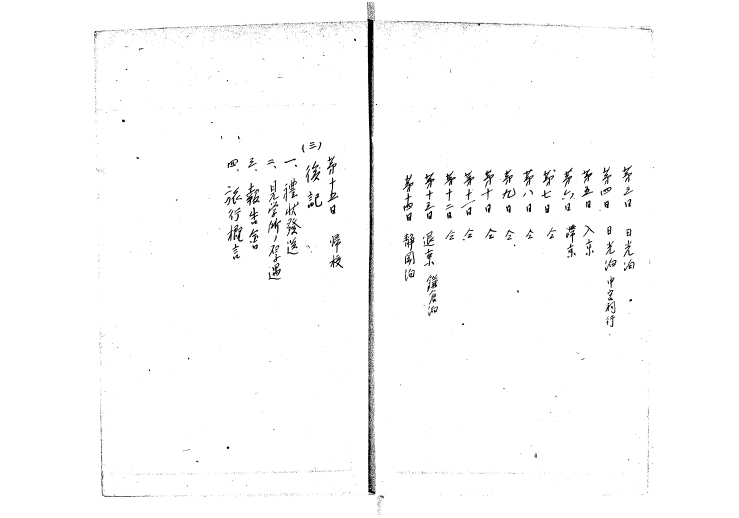 第三日 日光泊
第四日 日光泊 中宮祠行
第五日 入京
第六日 滞京
第七日 仝
第八日 仝
第九日 仝
第十日 仝
第十一日 仝
第十二日 仝
第十三日 退京 鎌倉泊
第十四日 静岡泊
第十五日 帰校
(三) 後記
一、禮状發送
二、見学所ノ
三、報告會
四、旅行概言